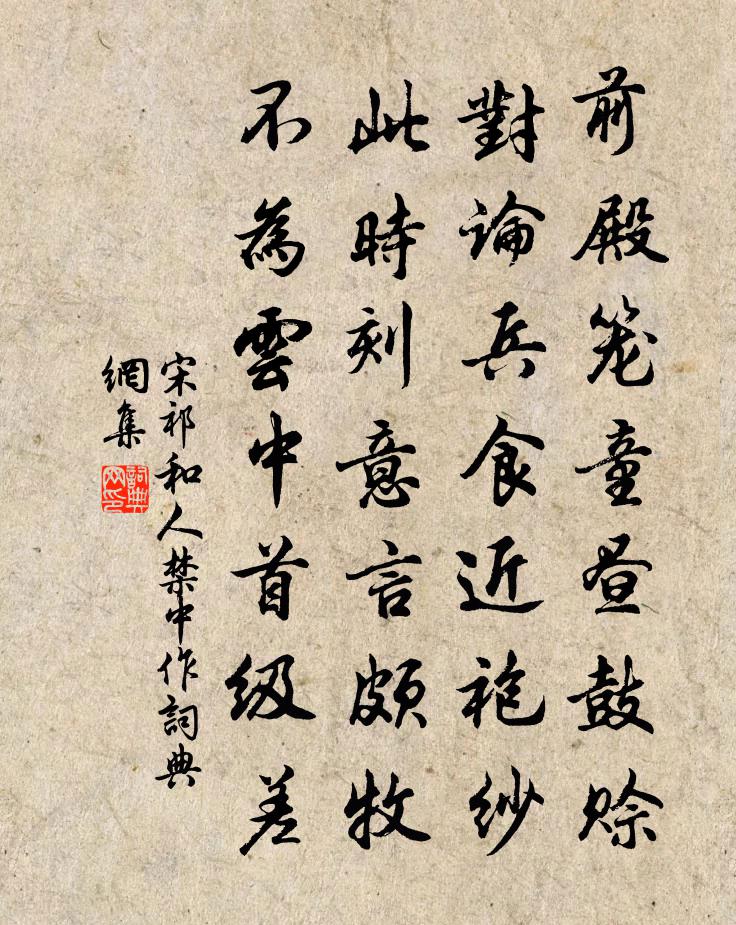 前殿笼童昼鼓赊
對論兵食近袍紗
此時刻意言頗牧
不為雲中首级差
宋祁和人禁中作詞典
網集
詞典
网印